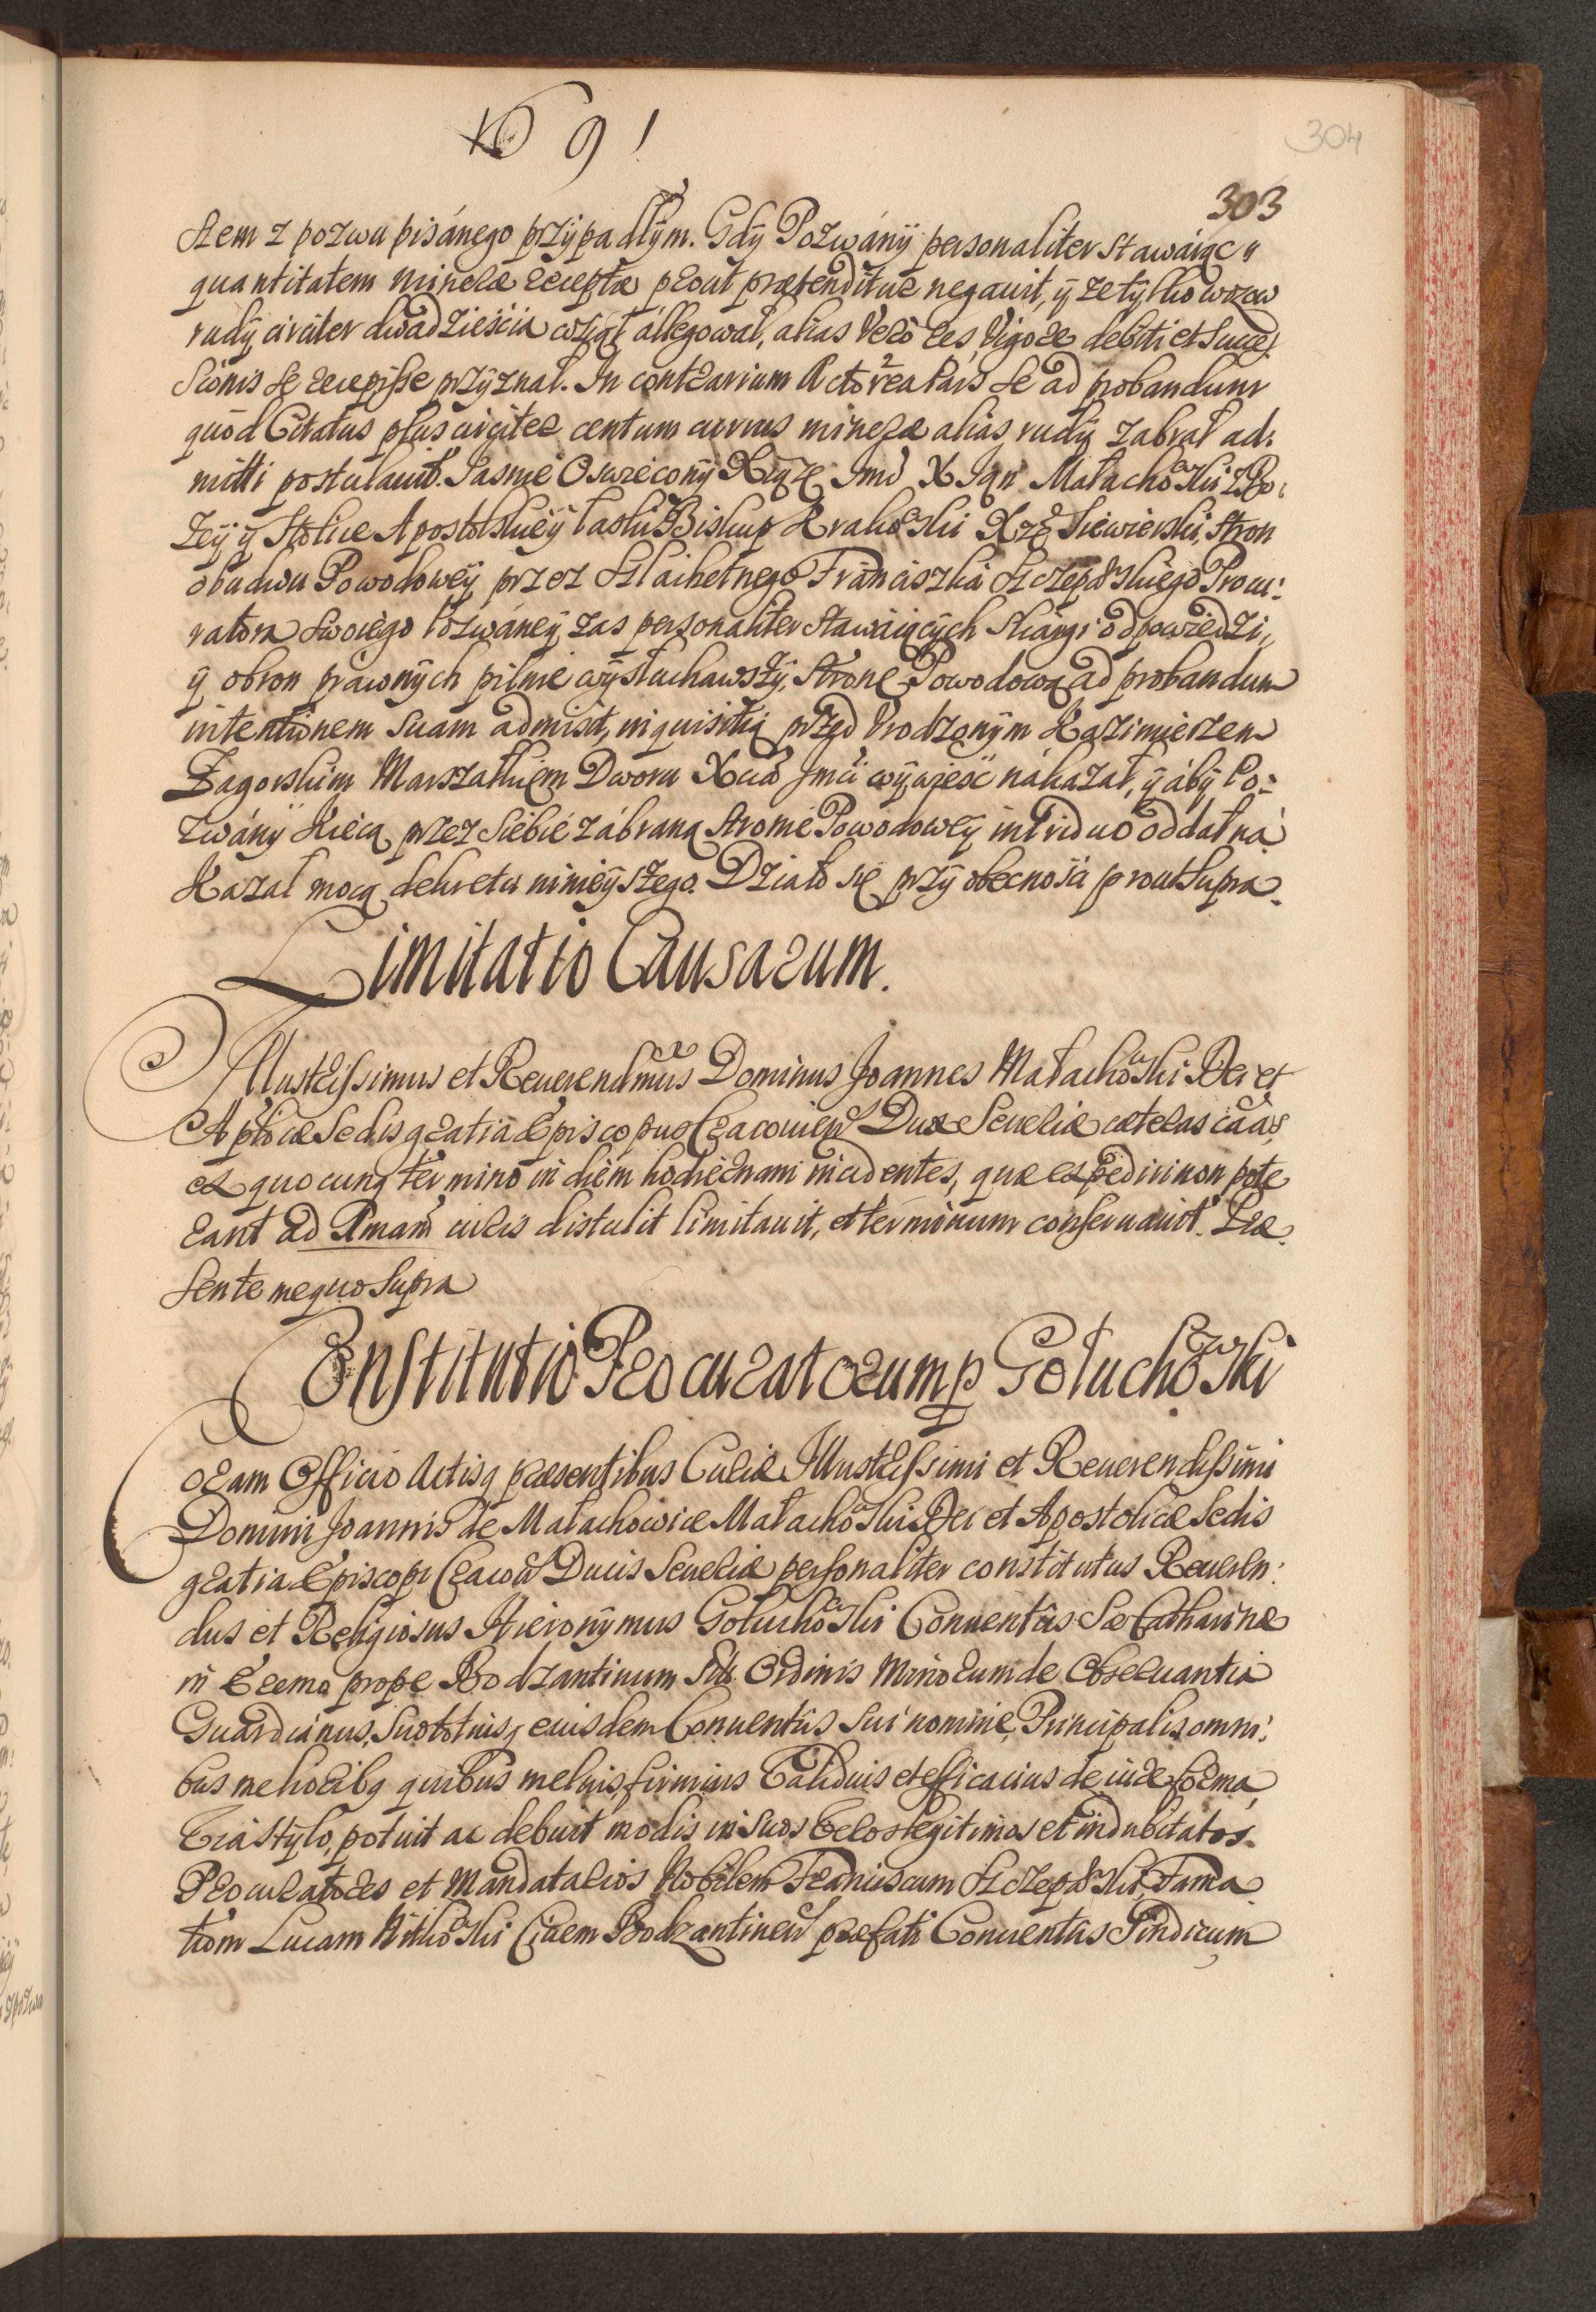 1691
304
303
stem z pozwu pisánego przÿpadłÿm. Gdÿ Pozwánÿ personaliter stawáiąc
quantitatem mineræ receptæ prout prætenditur negauit, ÿ ze tÿlko wozow
rudÿ circiter dwadzieścia wziął állegował, alias vero res vigore debiti et succes
sionis se recepisse przÿznał. In contrarium Actorea Pars se ad probandum
quod Citatus plus circiter centum currus mineræ alias rudÿ zabrał ad:
mitti postulauit. Jasnie Oswiéconÿ Xiąże Jmć X Jan Małachowski z Bo:
żeÿ ÿ Stolice Apostolskieÿ łaski Biskup Krakowski Xżę Siewierski, stron
obudwu Powodoweÿ przez Szlachetnego Fránciszká Szczepanskiego Procu:
ratora Swoiégo Pozwáneÿ zas personaliter stawáiącÿch skárgi odpowiedzi,
ÿ obron práwnÿch pilnie wÿsłuchawszÿ, stronę Powodową ad probandum
intentionem suam admisit, inquisitią przed Vrodzonÿm Kazimierzem
Zagorskim Marszałkiem Dworu Xcia Jmći wÿwieść nákazał, ÿ ábÿ Po:
zwánÿ Kiecą przez siebie zábraną stronie Powodoweÿ in triduo oddał ná
kazał mocą dekretu ninieÿszego. Działo się przÿ obecności prout supra.
Limitatio Causarum.
Illustrissimus et Reuerendmus Dominus Joannes Małachowski Dei et
Aplicæ Sedis gratia Episcopus Cracouien Dux Seueriæ cæteras caas
ex quocunq termino in diem hodiernam incidentes, quæ expediri non pote
rant ad Pmam iuris distulit limitauit, et terminum conseruauit. Præ
sente me quo supra
Constitutio Procuratorum p Gołuchowski
Coram Officio Actisq præsentibus Curiæ Illustrissimi et Reuerendissimi
Domini Joannis de Małachowice Małachowski Dei et Apostolicæ Sedis
gratia Episcopi Cracou Ducis Seueriæ personaliter constitutus Reueren:
dus et Religiosus Hieronÿmus Gołuchowski Conuentûs Sæ Catharinæ
in Eremo prope Bodzantinum Sti Ordinis Minorum de Obseruantia
Guardianus, suo totiusq eiusdem Conuentûs sui nomine, Principalis omni:
bus melioribq quibus melius, firmius validius et efficacius de iure forma,
via stÿlo, potuit ac debuit modis in suos veros legitimos et indubitatos
Procuratores et Mandatarios Nobilem Franciscum Szczepanski, Fama
tum Lucam Witkowski Ciuem Bodzantinen præfati Conuentûs Sindicum